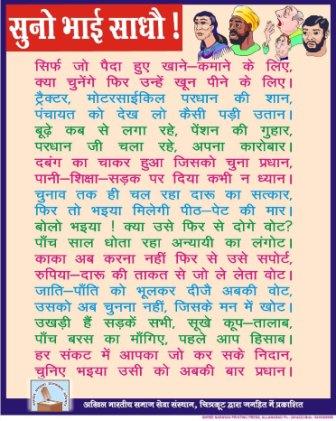 सुनो भाई साधौ !
सिर्फ जो पैदा हुए खाने-कमाने के लिए,
क्या चुनेंगे फिर उन्हें खून पीने के लिए।
ट्रैक्टर, मोटरसाईकिल परधान की शान,
पंचायत को देख लो कैसी पड़ी उतान।
बूढ़े कब से लगा रहे, पेंशन की गुहार,
परधान जी चला रहे, अपना कारोबार।
दबंग का चाकर हुआ जिसको चुना प्रधान,
पानी-शिक्षा-सड़क पर दिया कभी न ध्यान।
चुनाव तक ही चल रहा दारू का सत्कार,
फिर तो भइया मिलेगी पीठ-पेट की मार।
बोलो भइया ! क्या उसे फिर से दोगे वोट?
पाँच साल धोता रहा अन्यायी का लंगोट।
काका अब करना नहीं फिर से उसे सपोर्ट,
रुपिया-दारू की ताकत से जो ले लेता वोट।
जाति-पाँति को भूलकर दीजै अबकी वोट,
उसको अब चुनना नहीं, जिसके मन में खोट।
उखड़ी हैं सड़कें सभी, सूखे कूप-तालाब,
पाँच बरस का माँगिए, पहले आप हिसाब।
हर संकट में आपका जो कर सके निदान,
चुनिए भइया उसी को अबकी बार प्रधान।
अखिल भारतीय समाज सेवा संस्थान, चित्रकूट द्वारा जनहित में प्रकाशित